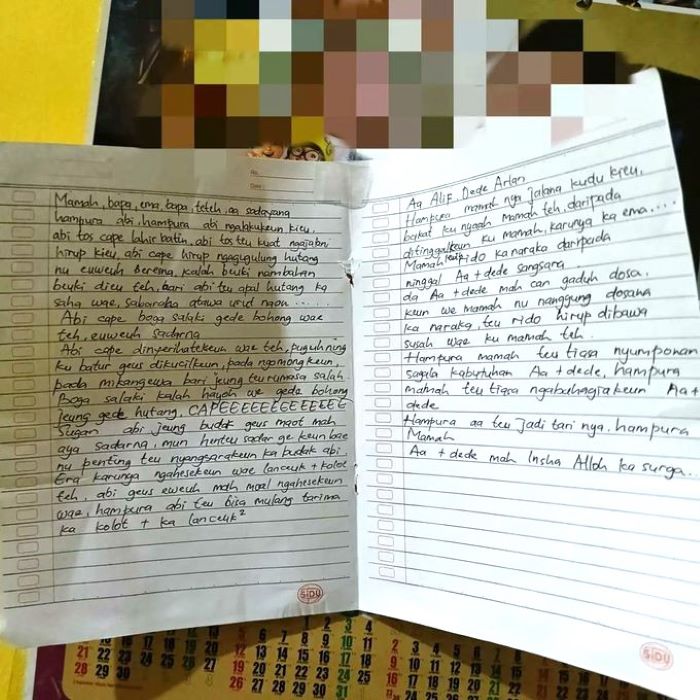 No.
Date
Mamah, bapa, ema, bapa, teteh, aa sadayana
hampura abi, hampura abi ngalakukeun kieu
abi tos cape lahir batin, abi tos teu kuat ngajabni
hirup kieu, abi cape hirup ngagugulung hutang
nu euweuh beresna, kalah beuki nambahan
beuki dieu teh, bari abi teu apal hutang ka
saha wae, sabaraha atawa urut naon .....
Abi cape boga salaki gede bohong wae
teh, euweuh sadarna
Abi cape dinyerihatekeun wae teh, puguh ning
ku batur geus dikucilkeun, pada ngomongkeun,
pada mikangewa bari jeung teu rumasa salah.
Boga salaki kalah hayoh we gede bohong
jeung gede hutang, CAPEEEEEEEEEEEEE
Sugan abi jeung budak geus maot mah
aya sadarna, mun henteu sadar ge keun bae
nu penting teu nyangsarakeun ka budak abi.
Era karunya ngahesekeun wae lanceuk + kolot
teh, abi geus euweuh mah moal ngahesekeun
wae, hampura abi teu bisa mulang tarima
ka kolot + ka lanceuk²
SIDU
Aa Alif, Dede Arlan
Hampura mamah nya jalana kudu kieu,
bakat ku nyaah mamah teh, daripada
ditinggalkeun ku mamah, karunya ka ema....
Mamah rido ka naraka daripada
ninggal Aa + dede sangsara
da Aa + dede mah can gaduh dosa.
keun we mamah nu nanggung dosana
ka naraka, teu rido hirup dibawa
susah wae ku mamah teh.
Hampura mamah teu tiasa nyumponan
sagala kabutuhan Aa + dede, hampura
mamah teu tiasa ngabahagiakeun Aa +
dede
Hampura aa teu jadi tari nya, hampura
Mamah
Aa + dede mah Insha Alloh ka surga.
SIDU